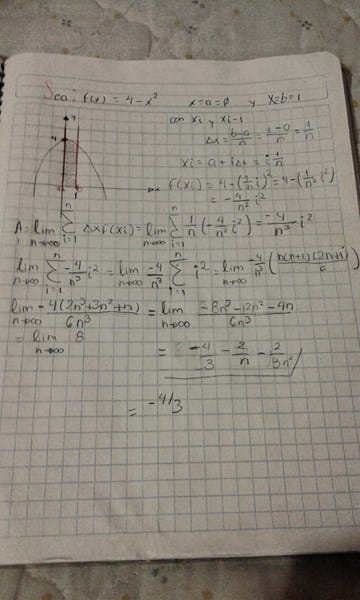 Sea: f(x) = 4 - x² x=a=0 y x=b=1
con xi y xi-1
Δx = b-a/n = 1-0/n = 1/n
xi = a + iΔx = i 1/n
f(xi) = 4-(1/n i)² = 4-(1/n² i²)
= -4/n² i²
4
1
A = lim n→∞ Σ i=1 n Δx f(xi) = lim n→∞ Σ i=1 n 1/n (-4/n² i²) = -4/n³ i²
lim n→∞ Σ i=1 n -4/n³ i² = lim n→∞ -4/n³ Σ i=1 n i² = lim n→∞ -4/n³ (n(n+1)(2n+1)/6)
lim n→∞ -4(2n³+3n²+n)/6n³ = lim n→∞ -8n³-12n²-4n/6n³
= lim n→∞ 8
= -4/3 - 2/n - 2/3n²
= -4/3